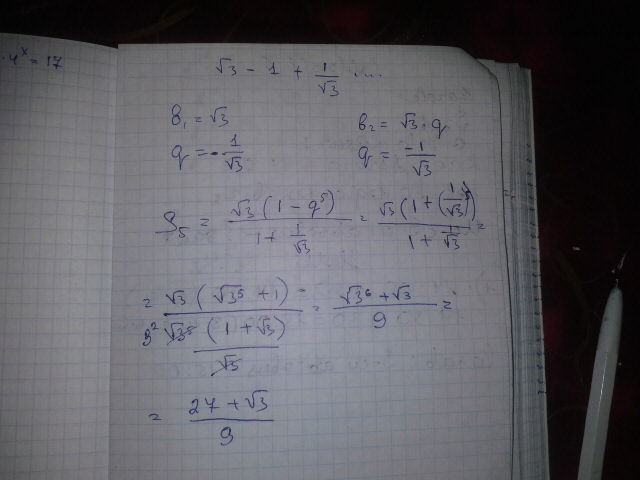 ·4^x = 17
√3 - 1 + 1/√3 ...
b₁ = √3
b₂ = √3 · q
q = - 1/√3
q = -1/√3
S₅ = √3 (1 - q⁵) / (1 + 1/√3) = √3 (1 + (1/√3)⁵) / (1 + 1/√3) =
= √3 (√3⁵ + 1) / (3² √3⁵ (1 + √3) / √3) = (√3⁶ + √3) / 9 =
= (27 + √3) / 9